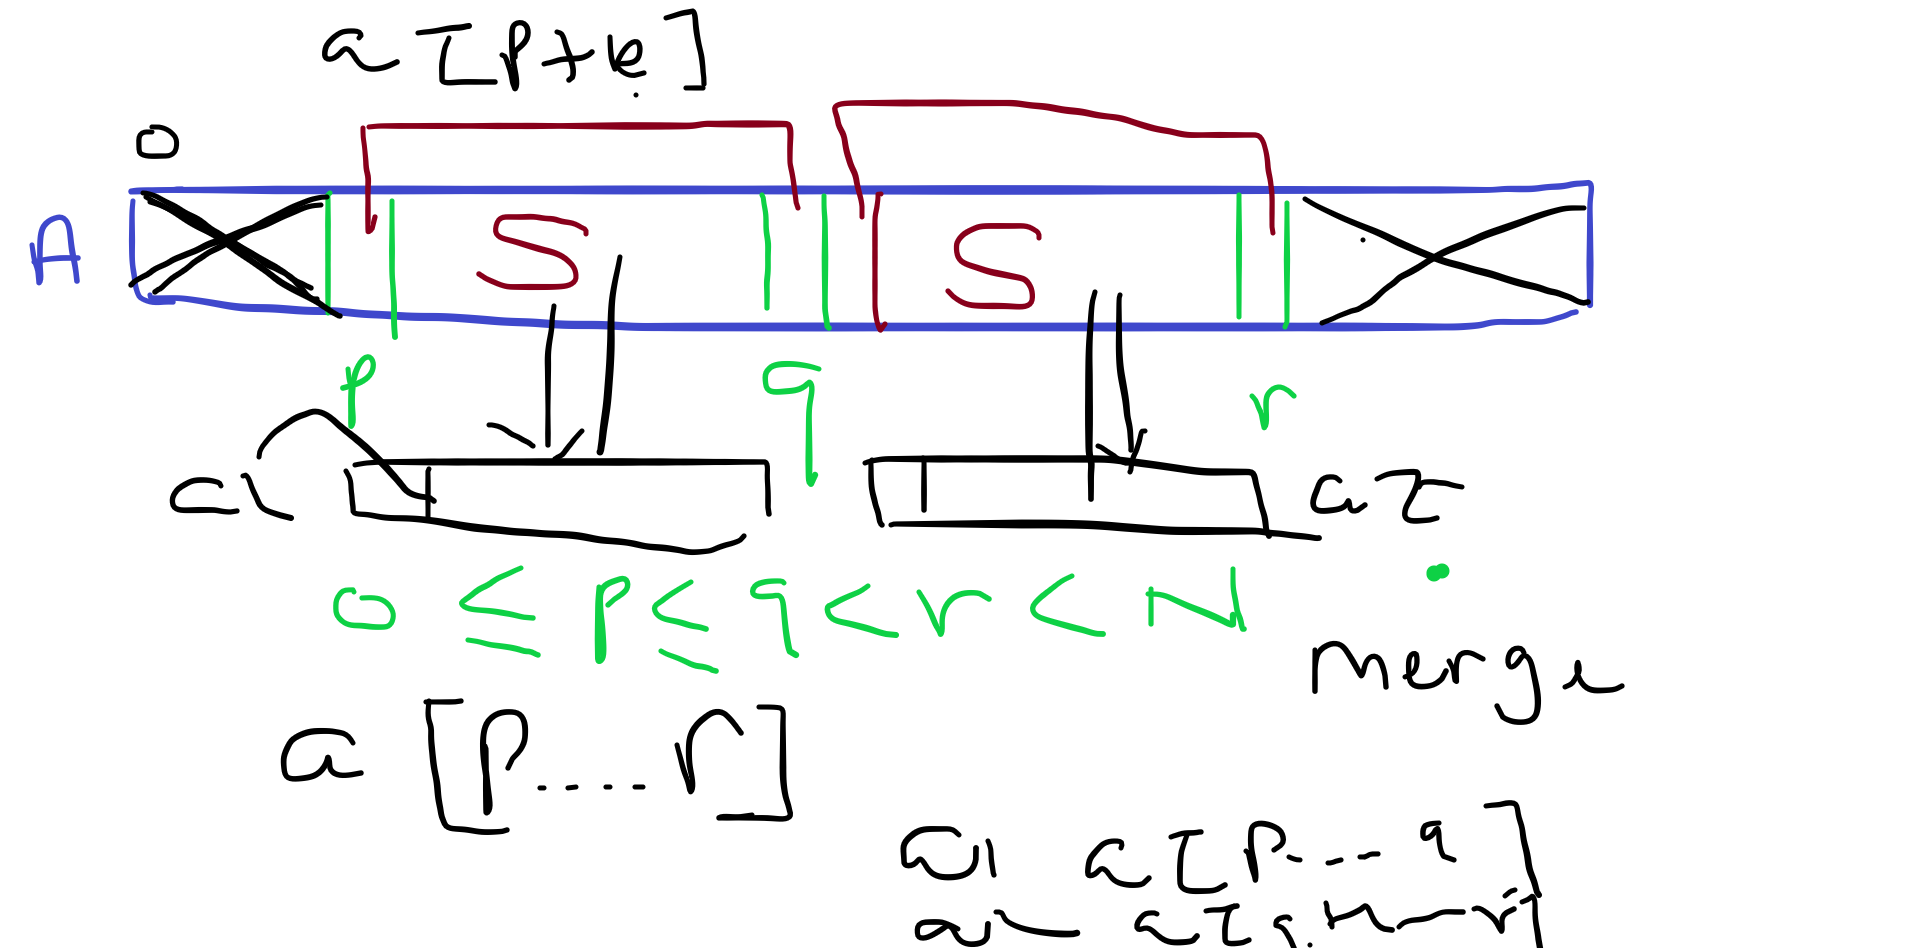 a [p+e]
0
A S S
p q r
a1 a2
0 ≤ p ≤ q < r < N
Merge
a [p....r]
a1 a[p....q]